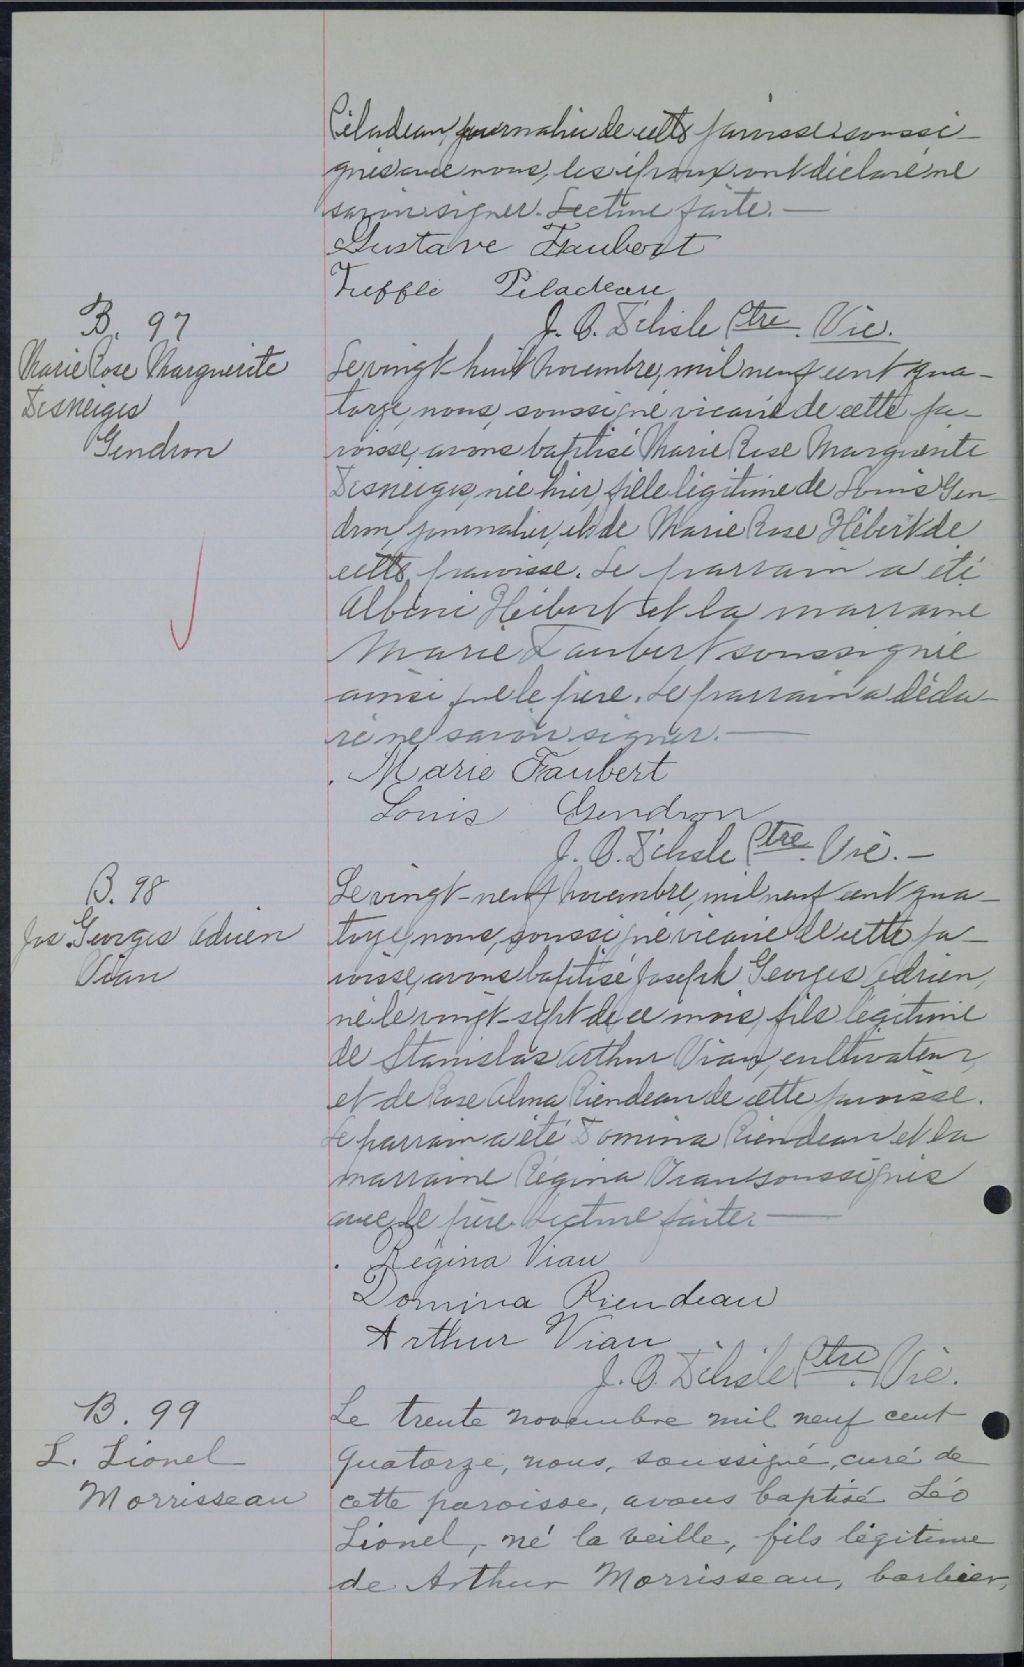 Piladeau, journalier de cette paroisse soussi-
gnés avec nous, les époux ont déclaré ne
savoir signer. Lecture faite. —
Gustave Faubert
Treffle Piladeau
J. O. Délisle Ptre. Vic.
B. 97
Marie Rose Marguerite
Desneiges
Gendron
Le vingt-huit Novembre, mil neuf cent qua-
torze, nous, soussigné vicaire de cette pa-
roisse, avons baptisé Marie Rose Marguerite
Desneiges, née hier, fille légitime de Louis Gen-
dron, journalier, et de Marie Rose Hébert de
cette paroisse. Le parrain a été
Albini Hébert et la marraine
Marie Faubert soussignée
ainsi que le père. Le parrain a décla-
ré ne savoir signer. —
Marie Faubert
Louis Gendron
J. O. Délisle Ptre. Vic. —
B. 98
Jos. Georges Adrien
Viau
Le vingt-neuf Novembre, mil neuf cent qua-
torze, nous, soussigné vicaire de cette pa-
roisse, avons baptisé Joseph Georges Adrien,
né le vingt-sept de ce mois, fils légitime
de Stanislas Arthur Viau, cultivateur,
et de Rose Alma Riendeau de cette paroisse.
Le parrain a été Domina Riendeau et la
marraine Régina Viau soussignés
avec le père. Lecture faite. —
Régina Viau
Domina Riendeau
Arthur Viau
J. O. Délisle Ptre. Vic.
B. 99
L. Lionel
Morrisseau
Le trente novembre mil neuf cent
quatorze, nous, soussigné, curé de
cette paroisse, avons baptisé Léo
Lionel, né la veille, fils légitime
de Arthur Morrisseau, barbier,